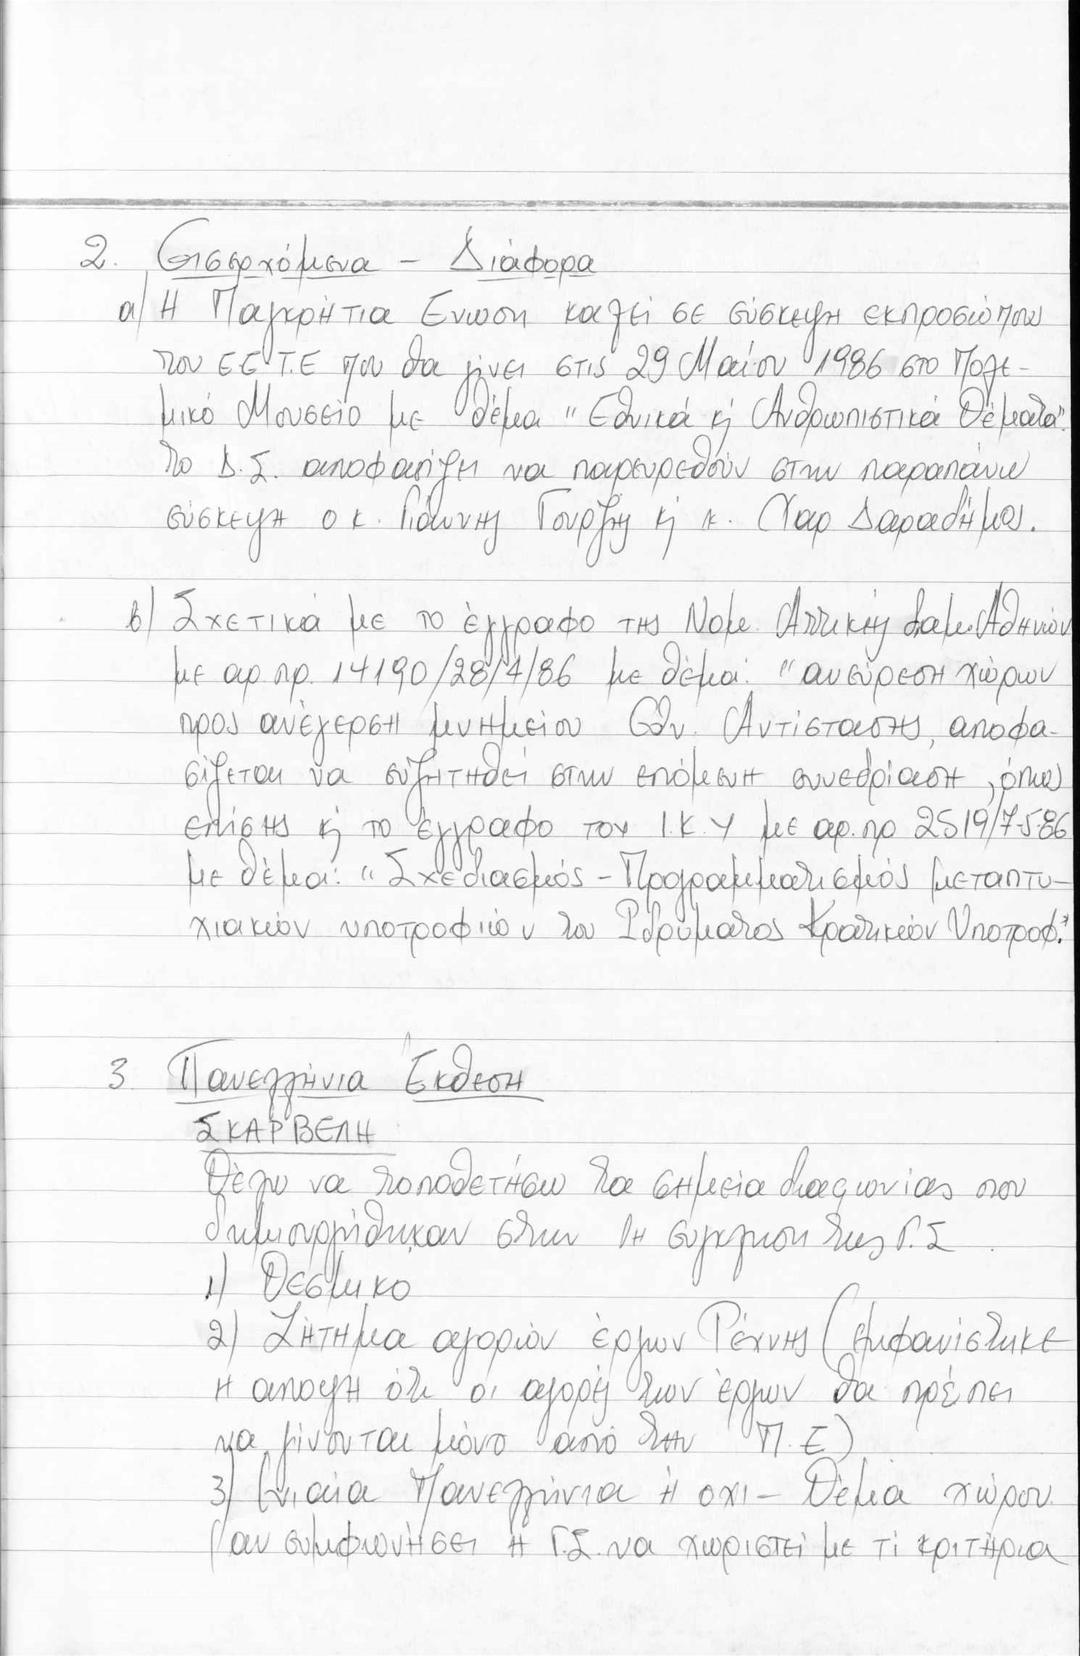 2. Εισερχόμενα - Διάφορα
α) Η Παγκρήτια Ένωση καλεί σε σύσκεψη εκπροσώπους
του Ε.Ε.Τ.Ε που θα γίνει στις 29 Μαίου 1986 στο Πολε-
μικό Μουσείο με θέμα "Εθνικά κ' Ανθρωπιστικά Θέματα".
Το Δ.Σ. αποφασίζει να παρευρεθούν στην παραπάνω
σύσκεψη ο κ. Γιάννης κ' κ. Χαρ Δαραδήμος.
β) Σχετικά με το έγγραφο της Νομ. Αττικής Διαμ. Αθηνών
με αρ. πρ. 14190/28/4/86 με θέμα: "ανεύρεση χώρων
προς ανέγερση μνημείου Εθν. Αντίστασης, αποφα-
σίζεται να συζητηθεί στην επόμενη συνεδρίαση, όπως
επίσης κ' το έγγραφο του Ι.Κ.Υ με αρ. πρ 2519/7-5-86
με θέμα: "Σχεδιασμός - Προγραμματισμός μεταπτυ-
χιακών υποτροφιών του Ιδρύματος Κρατικών Υποτροφ."
3. Πανελλήνια Έκθεση
ΣΚΑΡΒΕΛΗ
Θέλω να τοποθετήσω τα σημεία διαφωνίας που
δημιουργήθηκαν στην 1η σύγκληση της Γ.Σ
1) Θεσμικό
2) Ζήτημα αγορών έργων Τέχνης (εμφανίστηκε
η αποψη ότι οι αγορές των έργων θα πρέπει
να γίνονται μόνο από την Π.Ε)
3) Ενιαία Πανελλήνια ή οχι - Θέμα χώρου.
(αν συμφωνήσει η Γ.Σ. να χωριστεί με τί κριτήρια